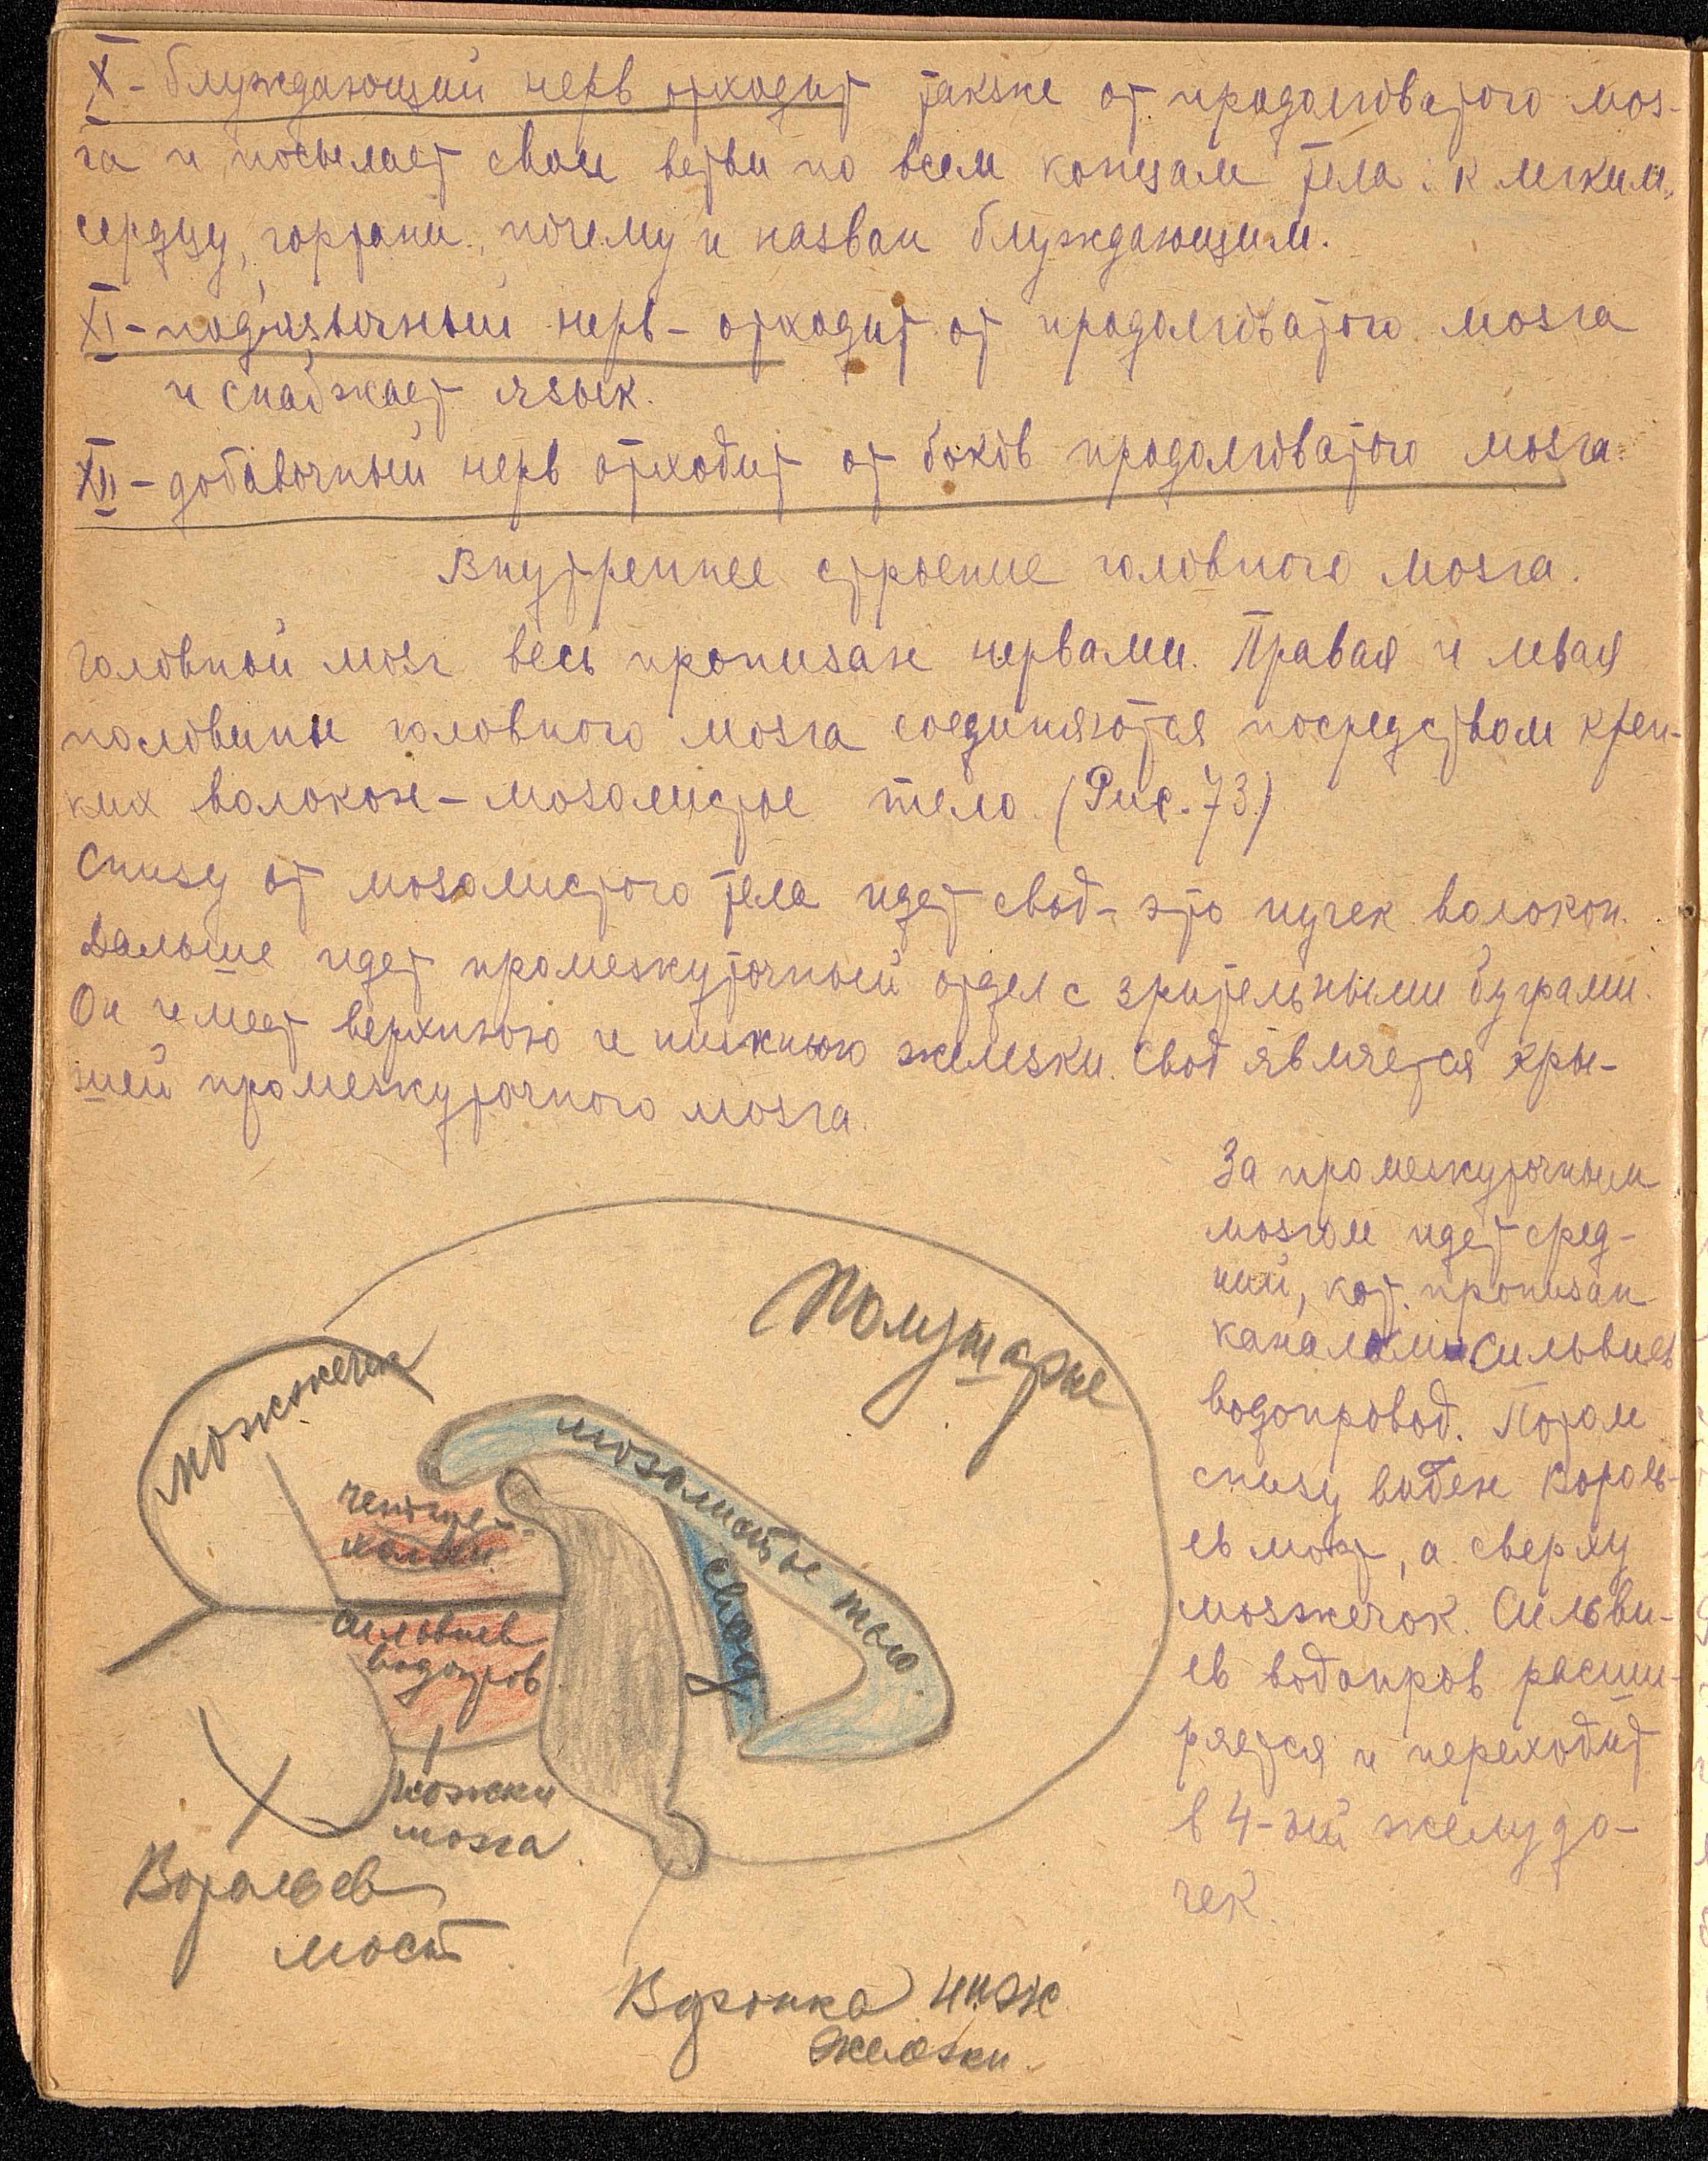 X - блуждающий нерв отходит также от продолговатого моз-
га и посылает свои ветви по всем концам тела: к легким,
сердцу, гортани, почему и назван блуждающим.
XI - подъязычный нерв - отходит от продолговатого мозга
и снабжает язык.
XII - добавочный нерв отходит от боков продолговатого мозга.
Внутреннее строение головного мозга.
Головной мозг весь пронизан нервами. Правая и левая
половины головного мозга соединяются посредством креп-
ких волокон - мозолистое тело. (Рис. 73.)
Снизу от мозолистого тела идет свод - это пучек волокон.
Дальше идет промежуточный отдел с зрительными буграми.
Он имеет верхнюю и нижнюю железки. Свод является кры-
шей промежуточного мозга.
За промежуточным
мозгом идет сред-
ний, кот. пронизан
каналом Сильвиев
водопровод. Потом
снизу виден Вороль-
ев мост, а сверху
мозжечок. Сильви-
ев водопров расши-
ряется и переходит
в 4-ый желудо-
чек.
Полушарие
мозжечек
мозолистое тело
свод
Сильвиев
водопров
ножки
мозга
Воральев
мост
Воронка ниж
железки.